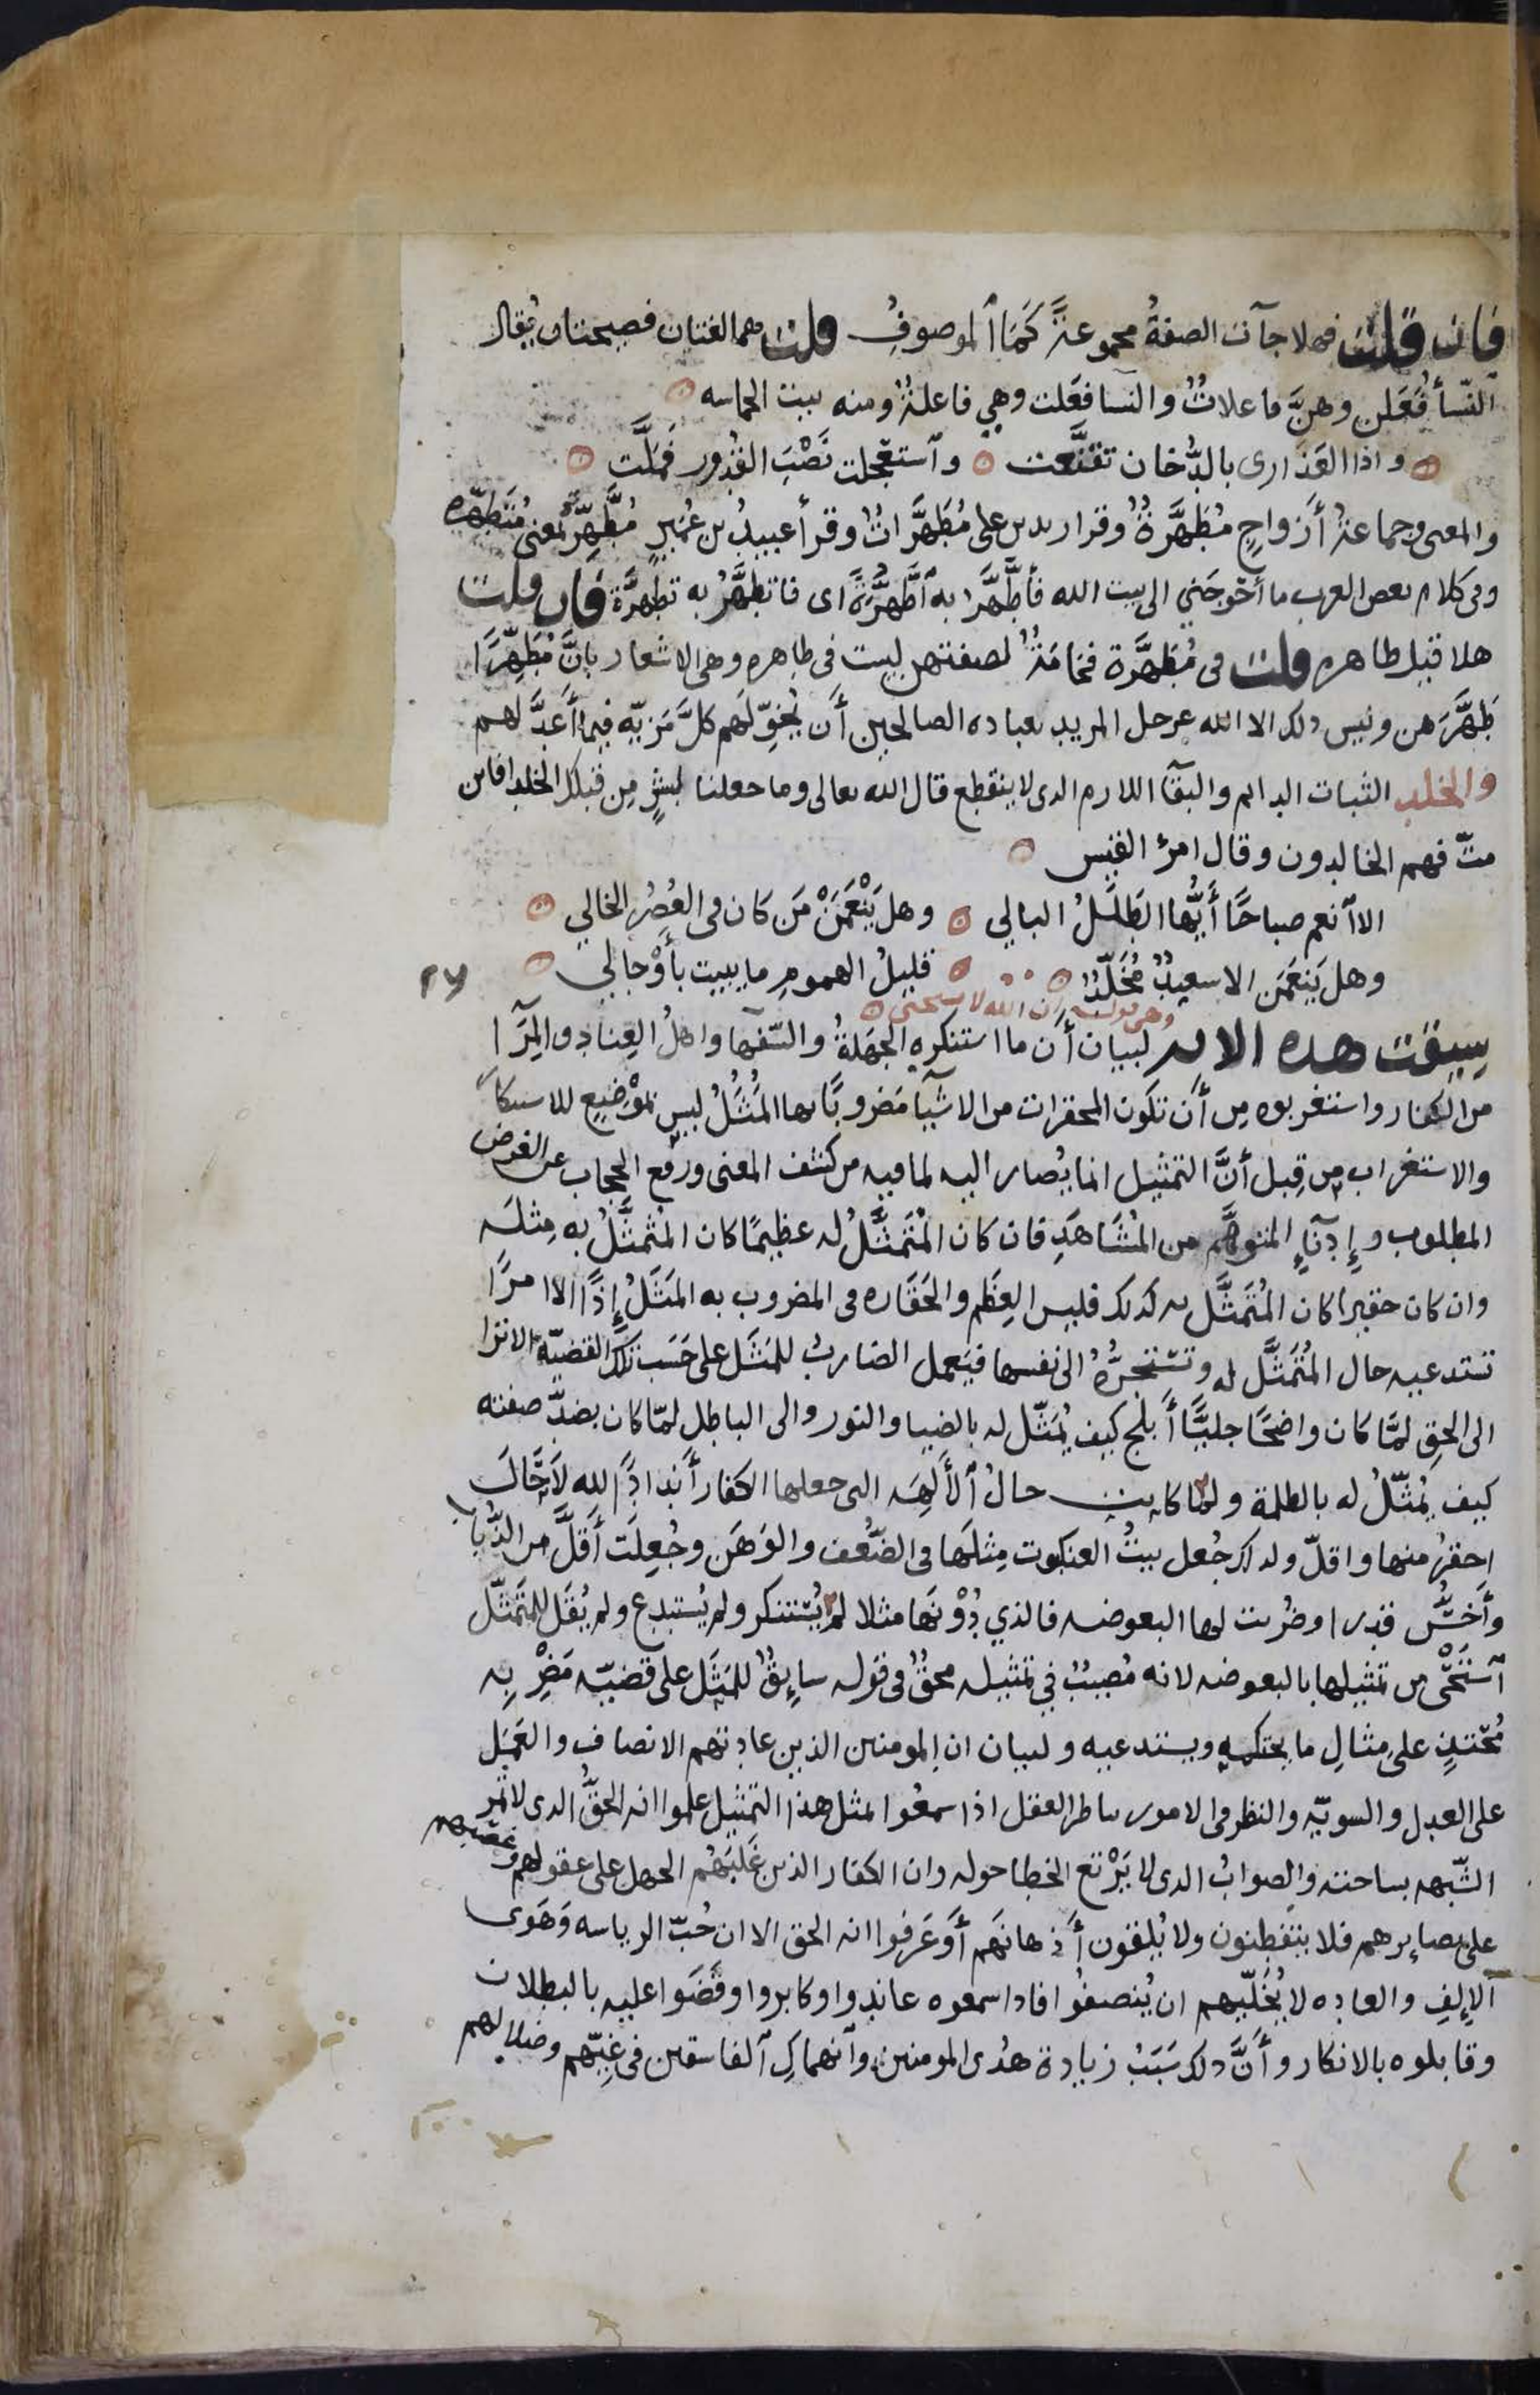 فان قلت فهلا جآت الصفةُ مجموعةً كَمَا ٱلموصوفِ قلت هما لغتان فصيحتان يُقال
النّسأ فَعَلن وهنَّ فاعلاتٌ والنسا فعَلت وهي فاعلةٌ ومنه بيت الحماسه
واذا العَذارى بالدُّخان تقنَّعت وٱستعجلت نَصْبَ القُدور فَمَلَّت
والمعنى وجماعةُ أَزواجٍ مُطَهَّرةٌ وقرا زيد بن على مُطَهَّراتٌ وقرأ عبيدُ بن عُمَيرٍ مُطَّهِّرَةٌ بمعنى مُتَطَهّره
وفى كلام بعض العرب ما أحْوجَني الى بيت الله فأطَّهَّرُ به ٱطَّهُّرَةً اى فاتطهَّرُ به تطهُّرَةً فان قلت
هلا قيل طاهره قلت فى مُطَهَّرة فخامَةٌ لصفتهن ليست فى طاهره وهى الاشعار بانَّ مُطَهِّرًا
طَهَّرَهن وليس ذلك الا الله عز وجل المريد بعباده الصالحين أَن يُخَوِّلَهم كلَّ مَزيّه فيما أَعَدَّ لهم
والخلد الثبات الدايم والبقآ اللازم الذى لا ينقطع قال الله تعالى وما جعلنا لبشرٍ مِن قبلك الخلد افاين
متّ فهم الخالدون وقال امرؤ القيس
الا ٱنعم صباحًا أَيُّها الطَلَلُ البالي وهل يَنْعَمَنْ مَن كان فى العُصُر الخالي
وهل يَنعَمَن الا سعيدٌ مُخَلَّدٌ قليلُ الهمومِ ما يبيت بأَوْجالِي
٢٧
وهى قولـه ان الله لا يستحيى
سيقت هذه الايه لبيان أَن ما استنكره الجهَلةُ والسّفهآ واهلُ العِناد والمِرَآ
من الكفار واستغربوه مِن أَن تكون المحقرات من الاشيآ مَضروبًا بها المَثَلُ ليس بمَوْضِع للاستنكار
والاستغراب مِن قِبل أَنَّ التمثيل انما يُصار اليه لما فيه من كشف المعنى ورفع الحجاب عن الغرض
المطلوب وإِدنآءِ المتوهَّم من المُشَاهَدِ فان كان المُتَمَثَّلُ له عظيمًا كان المُتمثَّلُ به مِثلَه
وان كان حقيرا كان المُتَمَثَّل به كذلك فليس العِظَم والحَقَاره فى المضروب به المَثَلُ إِذًا الا امرًا
تستدعيه حال المُتَمَثَّل له وتستجرُّهُ الى نفسها فيَعمل الضاربُ للمَثَل على حَسَب تلك القضيّة الا ترا
الى الحق لمَّا كان واضحًا جليًّا أَبلج كيف يُمَثّل له بالضيا والنور والى الباطل لمّا كان بضدّ صفته
كيف يُمَثّلُ له بالظلمة ولما كانت حالُ ٱلأَلِهَه التى جعلها الكفار أَندادًا لله لا حالَ
احقرُ منها واقلّ ولذلك جُعل بيتُ العنكبوت مِثلَها فى الضُّعف والوَهَن وجُعِلَت أَقلَّ من الذُّباب
وأَخسَّ قدرا وضُربت لها البعوضه فالذي دُوْنَها مثلا لم يُستنكر ولم يُستبدع ولم يُقَل للمتَمَثّل
ٱستَحْىِ من تمثيلها بالبعوضه لانه مُصيبٌ في تمثيله محقٌّ فى قوله سايِقٌ للمَثَل على قضيّه مَضْرِبِه
مُحْتَذٍ على مِثالِ ما يحتكمه ويستدعيه ولبيان ان المومنين الذين عادتهم الانصاف والعَمَل
على العدل والسويّه والنظر فى الامور بناظر العقل اذا سمعُوا بمثل هذا التمثيل علموا انه الحقُّ الذى لا تمر
الشّبهه بساحته والصوابُ الذى لا يَرْتع الخطا حوله وان الكفار الذين غَلَبَهُم الجهل على عقولهم وغَصَبهم
على بصايرهم فلا يتفطنون ولا يُلقون أَذهانَهم أَو عَرفوا انه الحق الا ان حُبّ الرياسه وَهَوى
ٱلإِلفِ والعاده لا يُخَلّيهم ان يُنصفُوا فاذا سمعوه عاندوا وكابروا وقَضَوا عليه بالبطلان
وقابلوه بالانكار وأَنَّ ذلك سَبَبُ زيادة هُدى المومنين وٱنهماكِ ٱلفاسقين فى غِيّهم وضلالهم